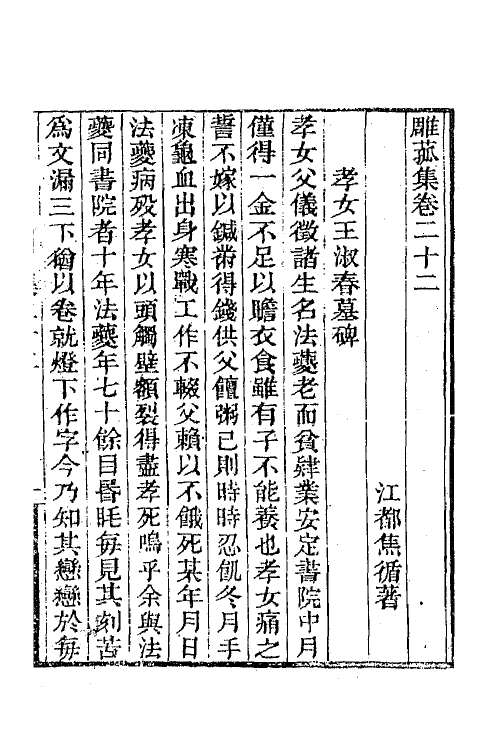 雕菰集卷二十二
江都焦循著
孝女王淑春墓碑
孝女父儀徵諸生名法夔老而貧肄業安定書院中月
僅得一金不足以贍衣食雖有子不能養也孝女痛之
誓不嫁以鍼黹得錢供父饘粥已則時時忍飢冬月手
凍龜血出身寒戰工作不輟父賴以不餓死某年月日
法夔病歿孝女以頭觸壁額裂得盡孝死嗚乎余與法
夔同書院者十年法夔年七十餘目昬眊每見其刻苦
爲文漏三下猶以卷就燈下作字今乃知其戀戀於每